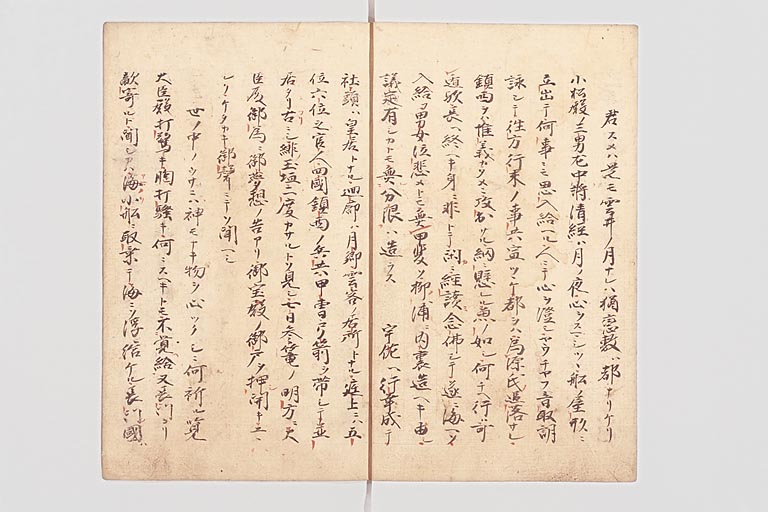 君スメハ是モ雲井ノ月ナレハ猶恋敷ハ都ナリケリ
小松殿ノ三男左中将清経ハ月ノ夜心ヲスマシツヽ船屋形ニ
立出テ何事ニモ思入給ヘル人ニテ心ヲ澄シヤウチヤフ音取朗
詠シテ住方行末ノ事共宣ツヽケ都ヲハ為源氏追落サレ
鎮西ヲハ惟義カタメニ攻出サル網懸レル魚ノ如シ何チヘ行ハ可
遁歟長ヘ終ヘキ身ニ非トテ閑ニ経読念佛シテ遂ニ海ヘ
入給ヌ男女泣悲メトモ無甲斐ソ柳浦ニ内裏造ヘキ由
議定有シカトモ無分限ハ造ラス
宇佐ヘ行幸成テ
社頭ハ皇居トナル廻廊ハ月卿雲客ノ居所トナル庭上ニハ五
位六位之官人四國鎮西ノ兵共甲冑弓箭ヲ帯シテ並
居タリ古ニシ緋玉垣二度カサルトソ見シ七日参篭ノ明方ニ大
臣殿御為ニ御夢想ノ告アリ御宝殿ノ御戸ヲ押開キ
シクケタカキ御聲ニテソ聞ヘシ
世ノ中ノウサニハ神モナキ物ヲ心ツクシニ何祈ル覧
大臣殿打驚キ胸打騒キ何ニスヘキトモ不覚給又長門ヨリ
敵寄ルト聞シカハ海小船ニ取乗テ海ニソ浮給ケル長門國ハ